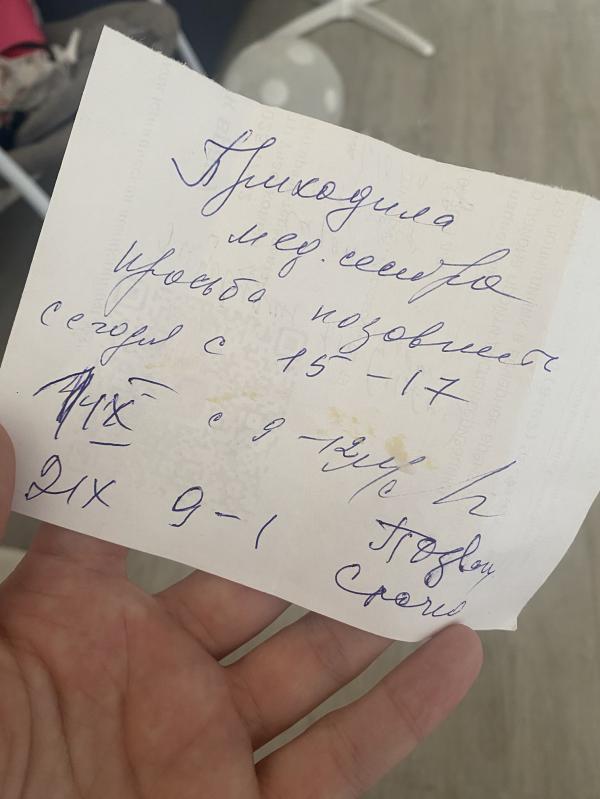 Приходила
мед. сестра
просьба позвонить
сегодня с 15-17
1IX с 9-12 м/с
2IX 9-1
Позвон
срочно